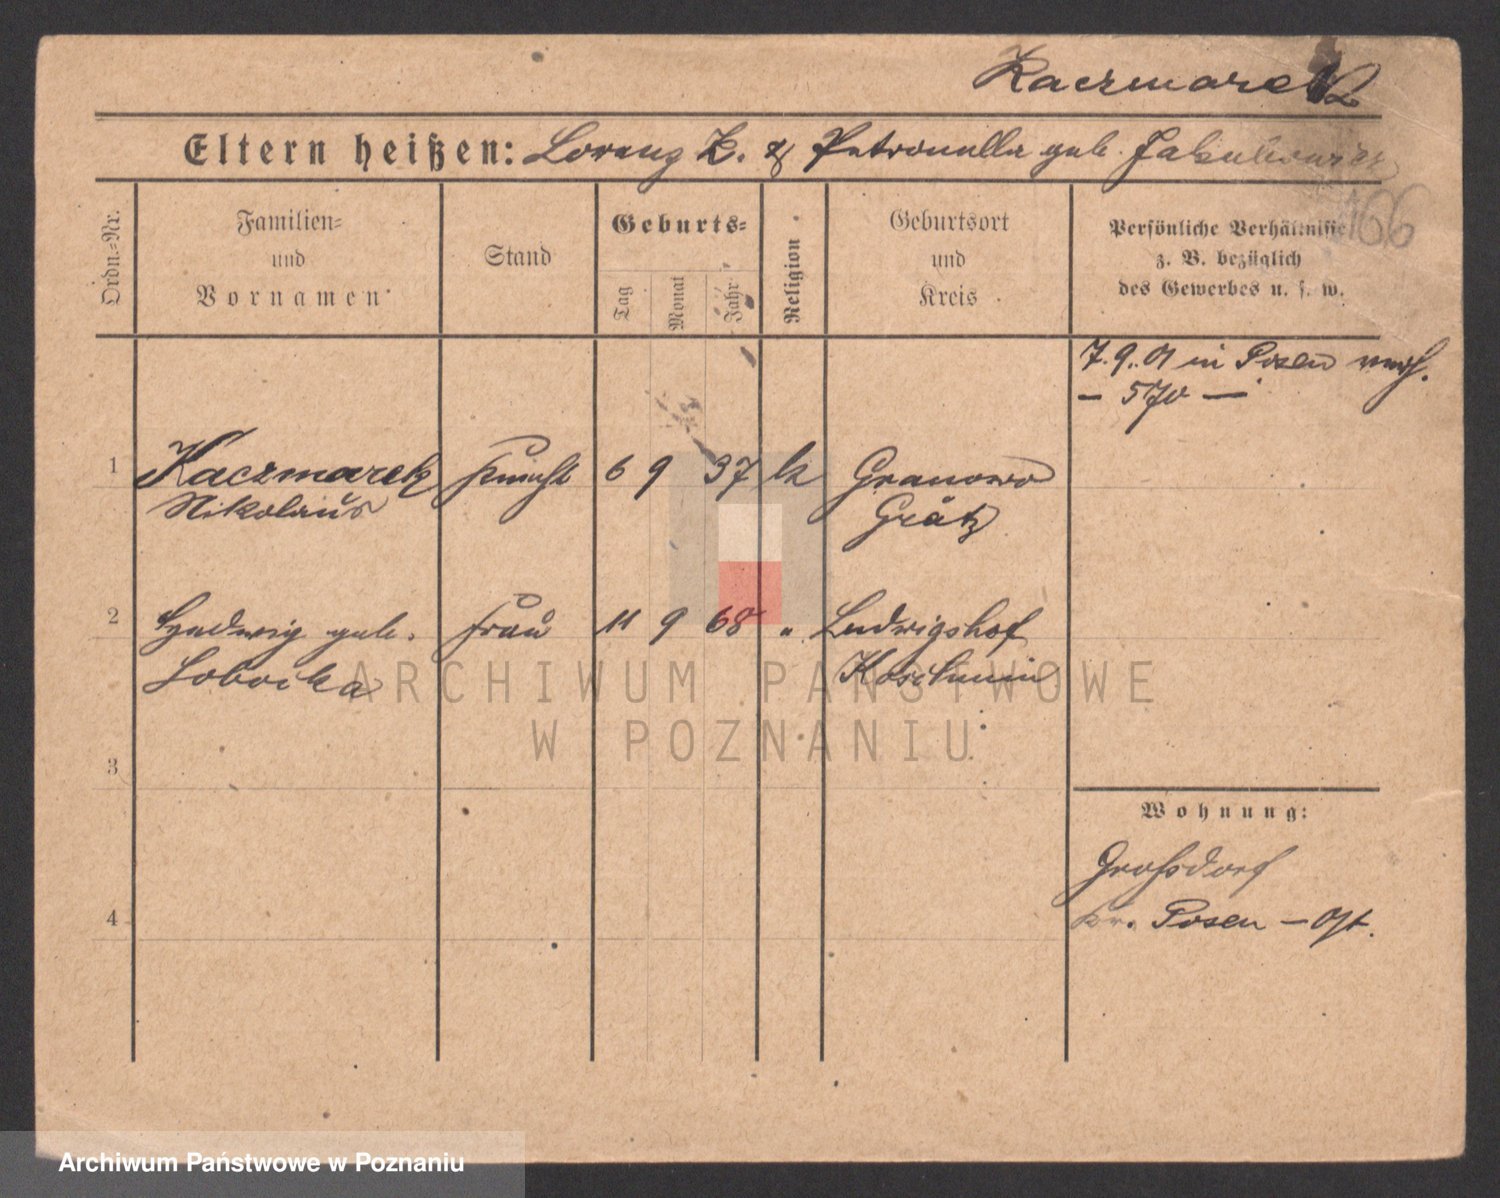 Kaczmarek
Eltern heißen: Lorenz K. & Petronella geb. Jakubowicz
166
Ordn.-Nr.
Familien-
und
Vornamen
Stand
Geburts-
Tag
Monat
Jahr
Religion
Geburtsort
und
Kreis
Persönliche Verhältnisse
z. B. bezüglich
des Gewerbes u. s. w.
7.9.01 in Posen verh.
— 570 —
1 Kaczmarek Knecht 6 9 37 k Granowo
Nikolaus Grätz
2 Hedwig geb. Frau 11 9 68 " Ludwigshof
Koschmin
3
Wohnung:
Großdorf
4 Kr. Posen - Ost.
ARCHIWUM PAŃSTWOWE
W POZNANIU
Archiwum Państwowe w Poznaniu